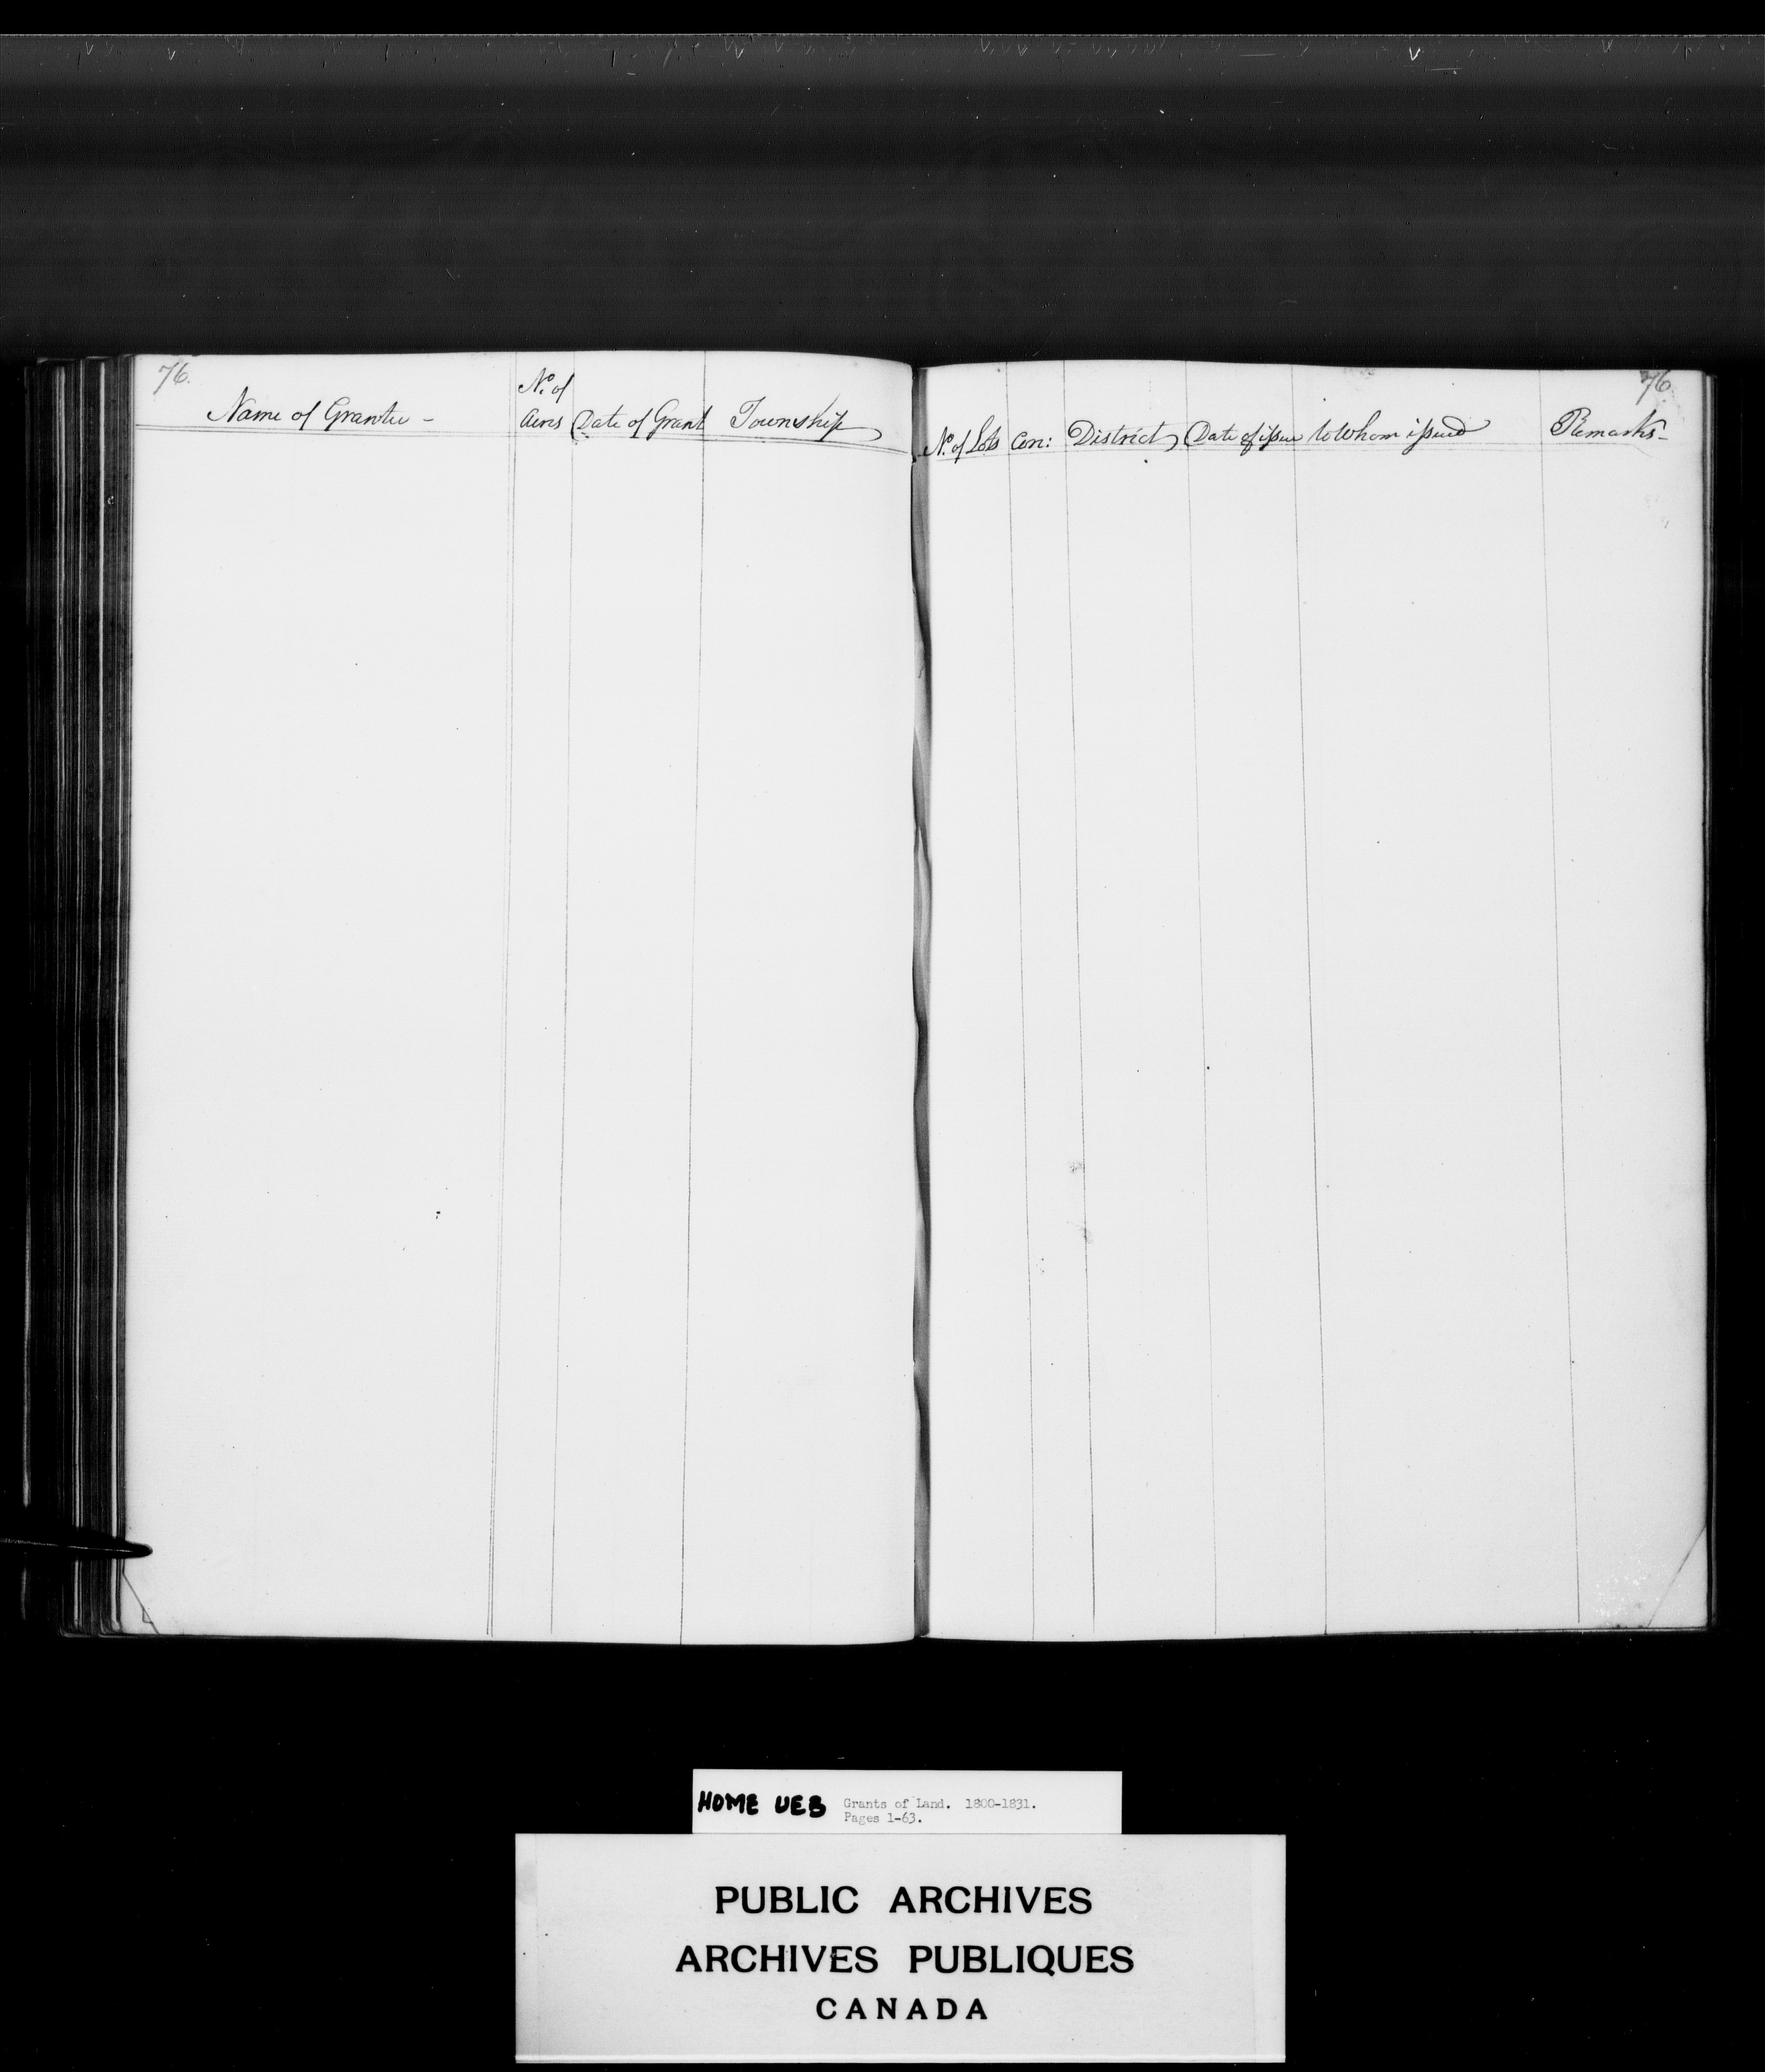 76.
Name of Grantee -
No. of Acres
Date of Grant
Township
76.
No. of Lots
Con:
District
Date of issue
to whom issued
Remarks -
HOME UEB
Grants of Land. 1800-1831.
Pages 1-63.
PUBLIC ARCHIVES
ARCHIVES PUBLIQUES
CANADA